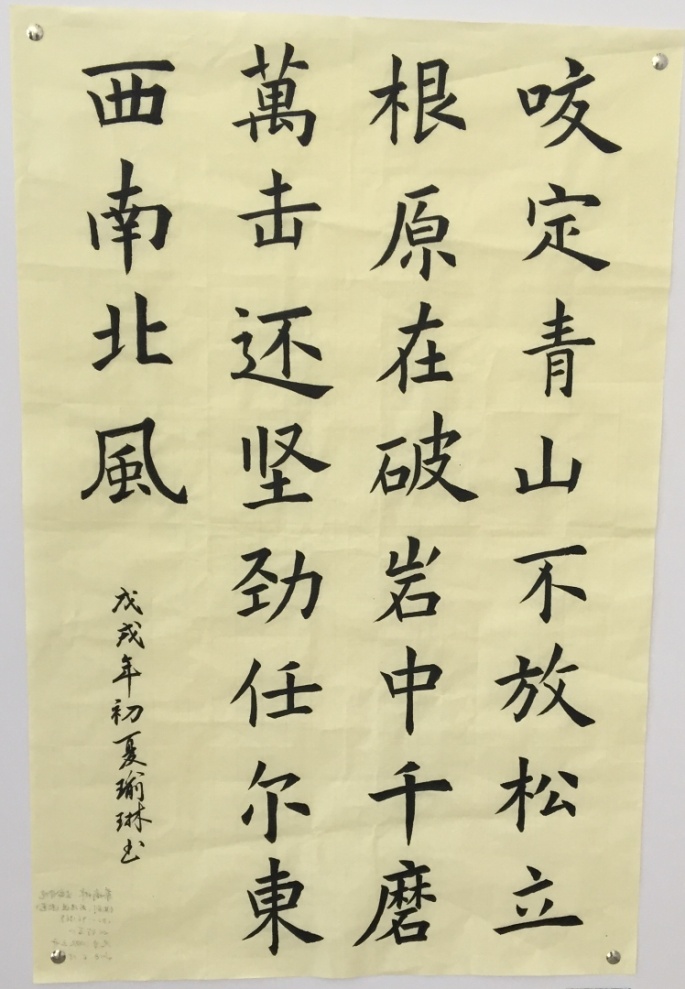 咬定青山不放松立
根原在破岩中千磨
萬击还坚劲任尔東
西南北風
戊戌年初夏瑜琳书